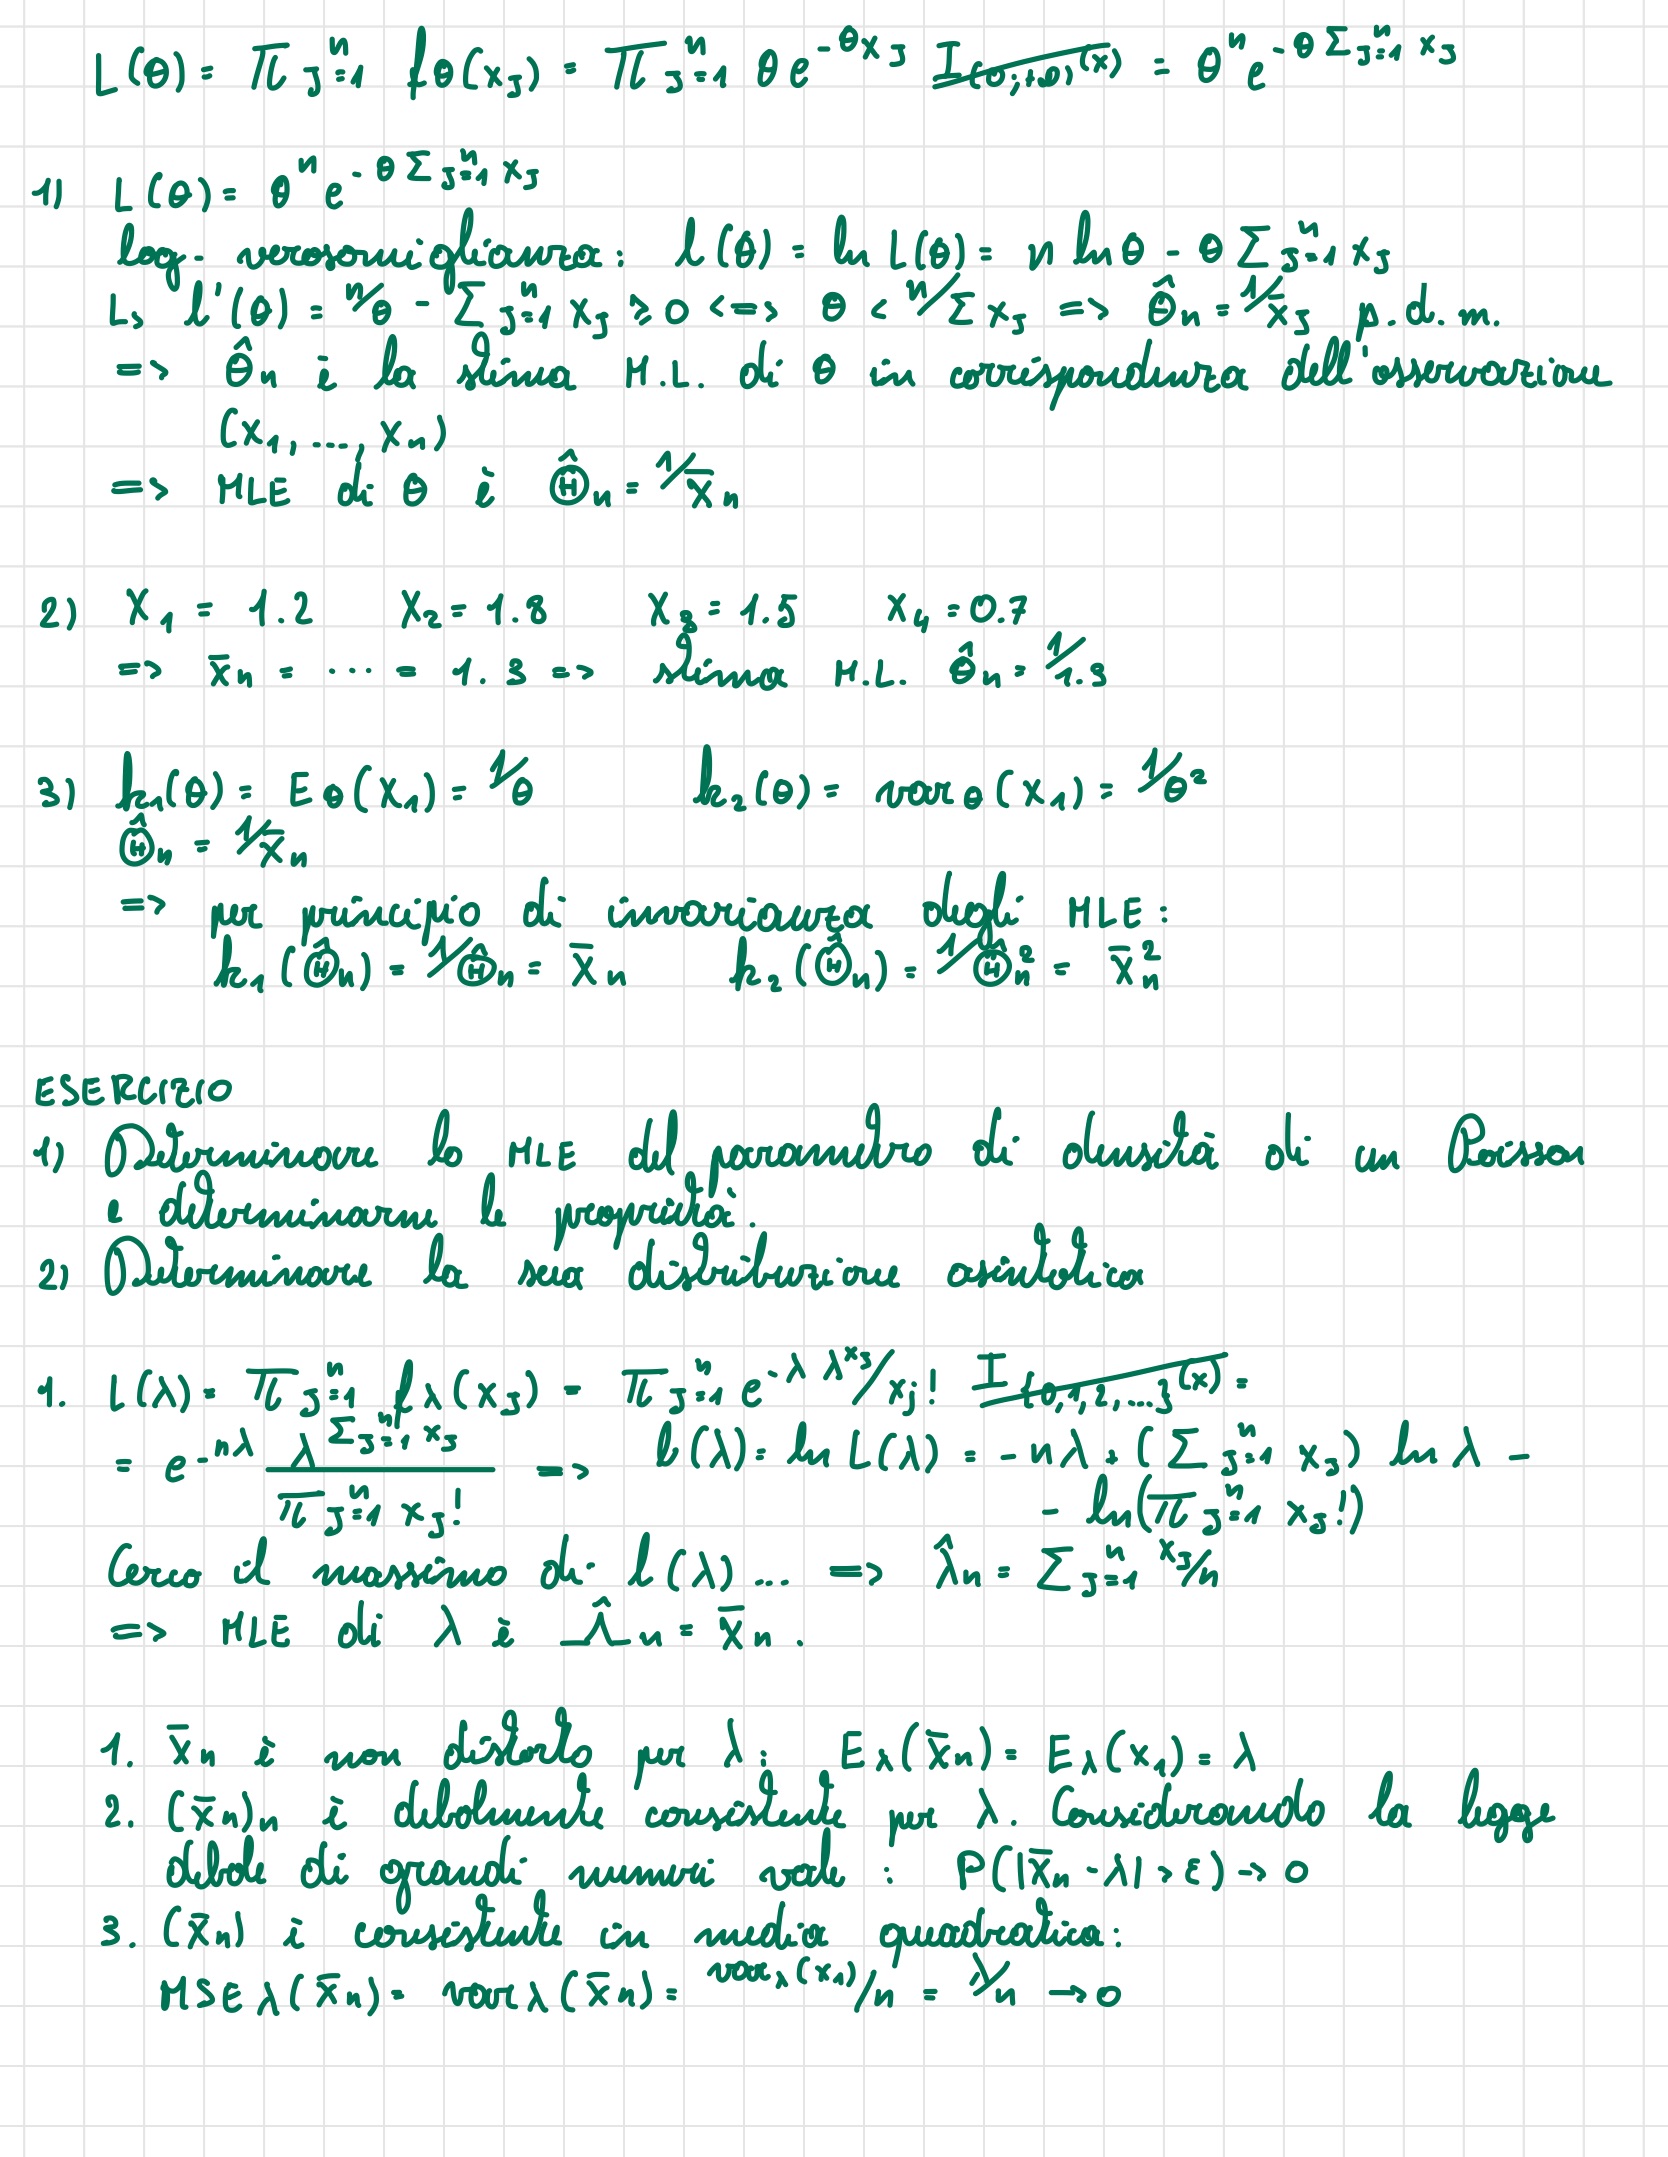 L(θ) = π j=1^n fθ(xj) = π j=1^n θe^-θxj I(0;+∞)(x) = θ^n e^-θ Σ j=1^n xj
1) L(θ) = θ^n e^-θ Σ j=1^n xj
log-verosomiglianza: l(θ) = ln L(θ) = n ln θ - θ Σ j=1^n xj
L> l'(θ) = n/θ - Σ j=1^n xj ≥ 0 <=> θ < n/Σ xj => θ̂n = 1/x̄j p.d.m.
=> θ̂n è la stima M.L. di θ in corrispondenza dell'osservazione
(x1, ..., xn)
=> MLE di θ è Θ̂n = 1/X̄n
2) X1 = 1.2 X2 = 1.8 X3 = 1.5 X4 = 0.7
=> x̄n = ... = 1.3 => stima M.L. θ̂n = 1/1.3
3) k1(θ) = Eθ(X1) = 1/θ k2(θ) = varθ(X1) = 1/θ²
Θ̂n = 1/X̄n
=> per principio di invarianza degli MLE:
k1(Θ̂n) = 1/Θ̂n = X̄n k2(Θ̂n) = 1/Θ̂n² = X̄n²
ESERCIZIO
1) Determinare lo MLE del parametro di densità di un Poisson
e determinarne le proprietà.
2) Determinare la sua distribuzione asintotica
1. L(λ) = π j=1^n fλ(xj) = π j=1^n e^-λ λ^xj/xj! I{0,1,2,...}(x) =
= e^-nλ λ^Σ j=1^n xj / π j=1^n xj! => l(λ) = ln L(λ) = -nλ + (Σ j=1^n xj) ln λ -
- ln(π j=1^n xj!)
Cerco il massimo di l(λ) ... => λ̂n = Σ j=1^n xj/n
=> MLE di λ è Λ̂n = X̄n.
1. X̄n è non distorto per λ: Eλ(X̄n) = Eλ(X1) = λ
2. (X̄n)n è debolmente consistente per λ. Considerando la legge
debole di grandi numeri vale: P(|X̄n - λ| > ε) → 0
3. (X̄n) è consistente in media quadratica:
MSEλ(X̄n) = varλ(X̄n) = varλ(X1)/n = λ/n → 0